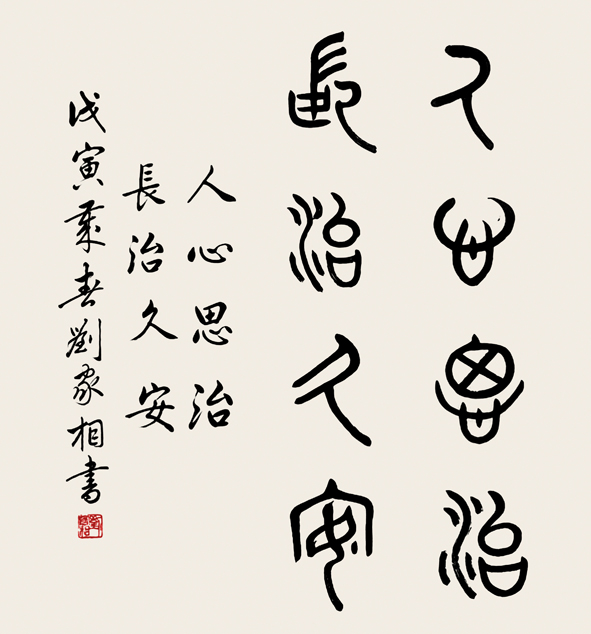 人心思治
長治久安
人心思治
長治久安
戊寅春劉家相書